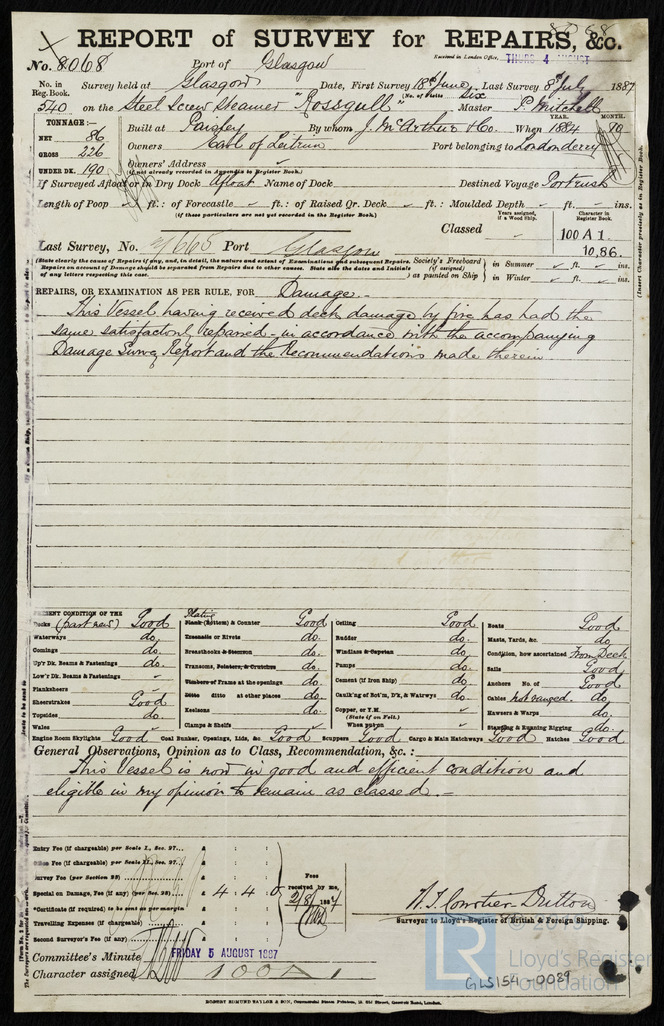 8068
REPORT of SURVEY for REPAIRS, &c.
Received in London Office, THURS 4 AUGUST
No. 8068 Port of Glasgow
No. in Reg. Book. Survey held at Glasgow Date, First Survey 18th June, Last Survey 8th July 1887
(No. of Visits Six)
540 on the Steel Screw Steamer "Rossgull" Master P. Mitchell
TONNAGE:—
NET 86
GROSS 226
UNDER DK. 190
Built at Paisley By whom J. McArthur & Co. When 1884 10
YEAR. MONTH.
Owners Earl of Leitrim Port belonging to Londonderry
Owners' Address
(if not already recorded in Appendix to Register Book.)
If Surveyed Afloat or in Dry Dock Afloat Name of Dock Destined Voyage Portrush
Length of Poop ft.: of Forecastle ft.: of Raised Qr. Deck ft.: Moulded Depth ft. ins.
(if these particulars are not yet recorded in the Register Book.)
Years assigned, if a Wood Ship. Character in Register Book.
Classed 100 A 1
10,86.
Last Survey, No. Port Glasgow
(State clearly the cause of Repairs, if any, and, in detail, the nature and extent of Examinations and subsequent Repairs.
Repairs on account of Damage should be separated from Repairs due to other causes. State also the dates and Initials
of any letters respecting this case.
Society's Freeboard (if assigned) as painted on Ship in Summer ft. ins.
in Winter ft. ins.
(Insert Character precisely as in Register Book.
REPAIRS, OR EXAMINATION AS PER RULE, FOR Damage.
This Vessel having received deck damage by fire has had the
same satisfactorily repaired - in accordance with the accompanying
Damage Survey Report and the Recommendations made therein
PRESENT CONDITION OF THE
Decks (part new) Good
Waterways do.
Comings do.
Up'r Dk. Beams & Fastenings do.
Low'r Dk. Beams & Fastenings
Planksheers
Sheerstrakes Good
Topsides do.
Wales
Plating
Plank (Bottom) & Counter Good
Treenails or Rivets do.
Breasthooks & Stemson do.
Transoms, Pointers, & Crutches do.
Timbers of Frame at the openings do.
Ditto ditto at other places do.
Keelsons do.
Clamps & Shelfs
Ceiling Good
Rudder do.
Windlass & Capstan do.
Pumps do.
Cement (if Iron Ship) do.
Caulk'ng of Bot'm, D'k, & Watrwys do.
Copper, or Y.M.
(State if on Felt.)
When put on
Boats Good
Masts, Yards, &c. do.
Condition, how ascertained From Deck
Sails Good
Anchors No. of Good
Cables not ranged. do.
Hawsers & Warps do.
Standing & Running Rigging do.
Engine Room Skylights Good Coal Bunker, Openings, Lids, &c. Good Scuppers Good Cargo & Main Hatchways Good Hatches Good
General Observations, Opinion as to Class, Recommendation, &c.:—
This Vessel is now in good and efficient condition and
eligible in my opinion to remain as classed.—
Entry Fee (if chargeable) per Scale I., Sec. 27...
Other Fee (if chargeable) per Scale II., Sec. 27...
Survey Fee (per Section 28)
Special or Damage, Fee (if any) (per Sec. 28) £ 4 : 4 : 0
*Certificate (if required) to be sent as per margin
Travelling Expenses (if chargeable)
Second Surveyor's Fee (if any)
Fees received by me,
2/8/1887
Surveyor to Lloyd's Register of British & Foreign Shipping.
Committee's Minute FRIDAY 5 AUGUST 1887
Character assigned 100 A 1
Lloyd's Register
Foundation
GLS154-0039
ROBERT EDMUND TAYLOR & SON,